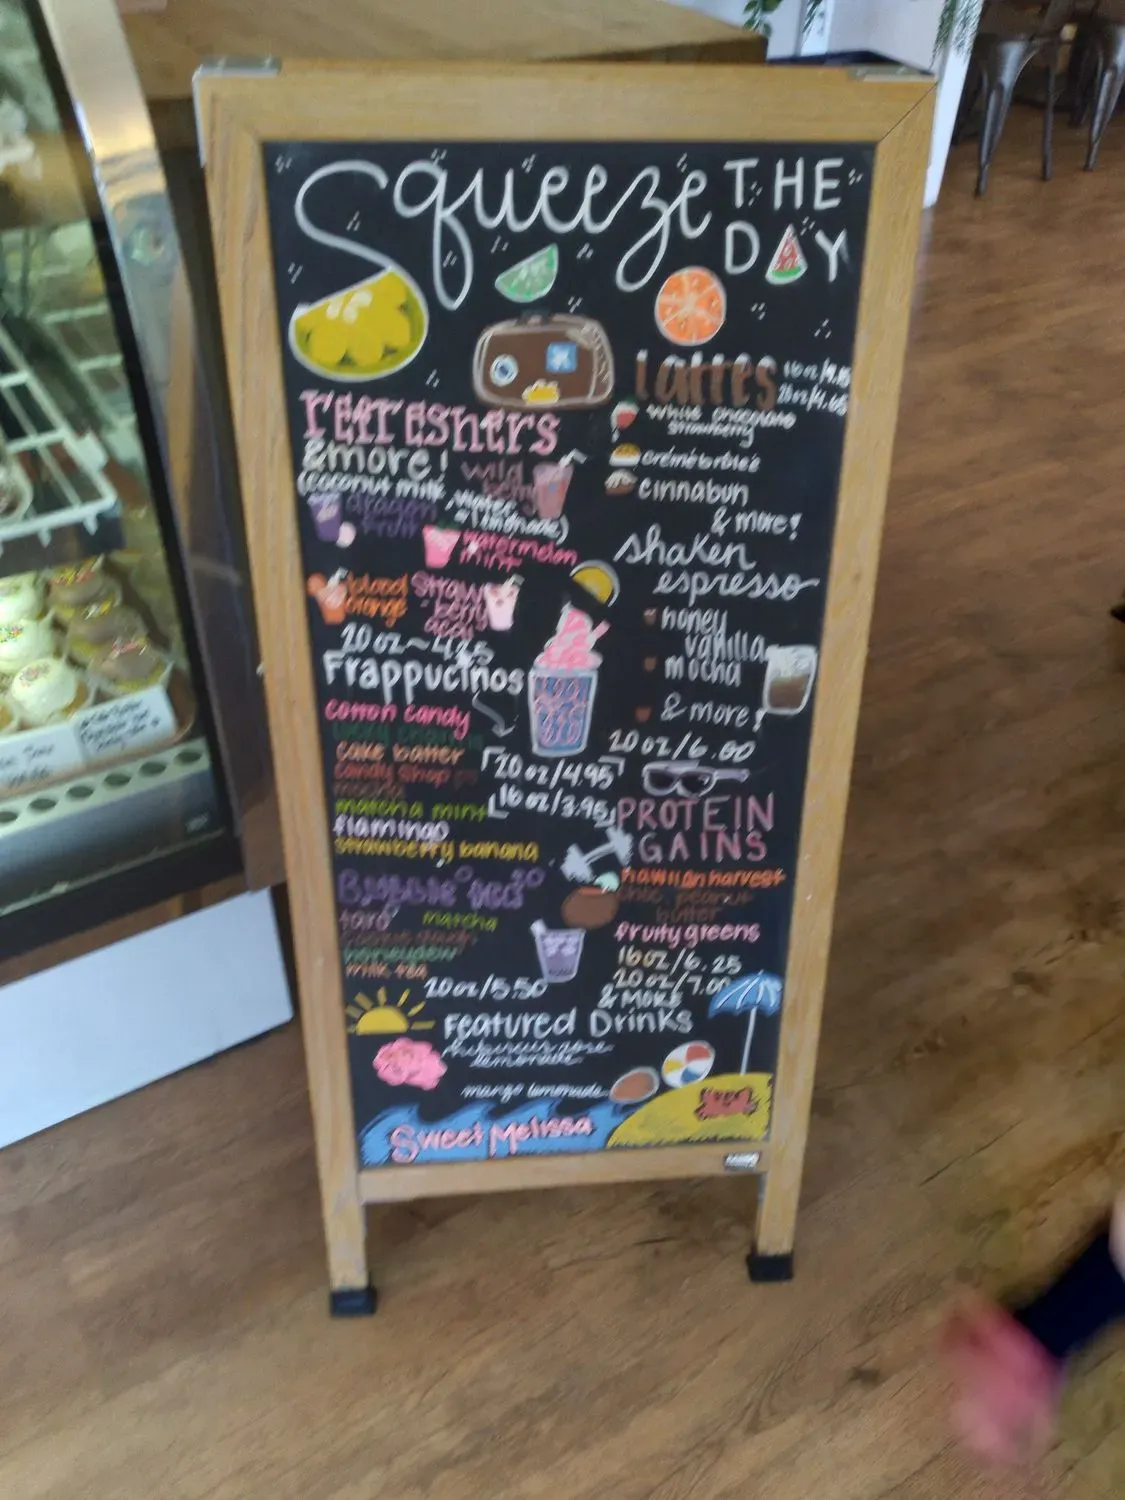 Squeeze THE
DAY
Refreshers
&more!
(coconut milk, water
or lemonade)
wild
berry
dragon
fruit
watermelon
mint
blood
orange
Straw
-berry
acai
20 oz~4.25
Frappucinos
cotton candy
cake batter
candy shop
mocha
matcha mint
flamingo
strawberry banana
20 oz/4.95
16 oz/3.95
Bubble Tea
taro
matcha
cookie dough
honeydew
milk tea
20 oz/5.50
Lattes
white chocolate
strawberry
cinnabun
& more!
shaken
espresso
honey
vanilla
mocha
& more!
20 oz/6.00
PROTEIN
GAINS
hawaiian harvest
choc. peanut
butter
fruity greens
16 oz/6.25
20 oz/7.00
& MORE
Featured Drinks
hibiscus rose
lemonade
mango lemonade
Sweet Melissa